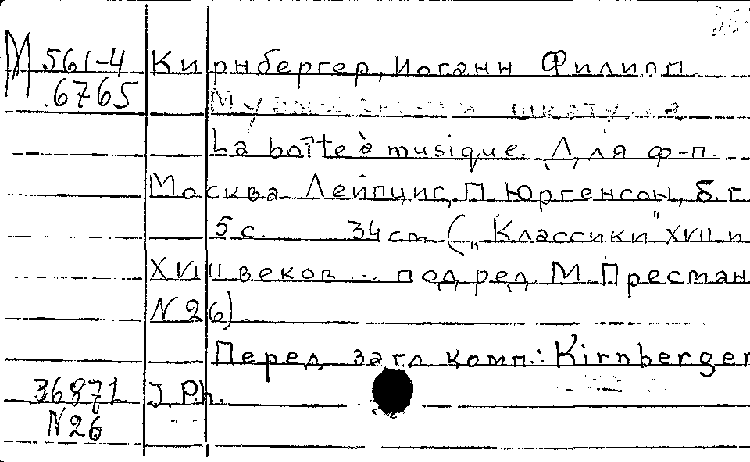 М 561-4 Кирнбергер, Иоганн Филипп.
6765 Музыкальная шкатулка
La boîte à musique. Для ф-п.
Москва Лейпциг, П. Юргенсон, б. г.
5 с. 34 cm („Классики" XVII и
XVIII веков ... под ред М. Пресман
N 26)
Перед загл. комп.: Kirnberger
36871 J. Ph.
N26